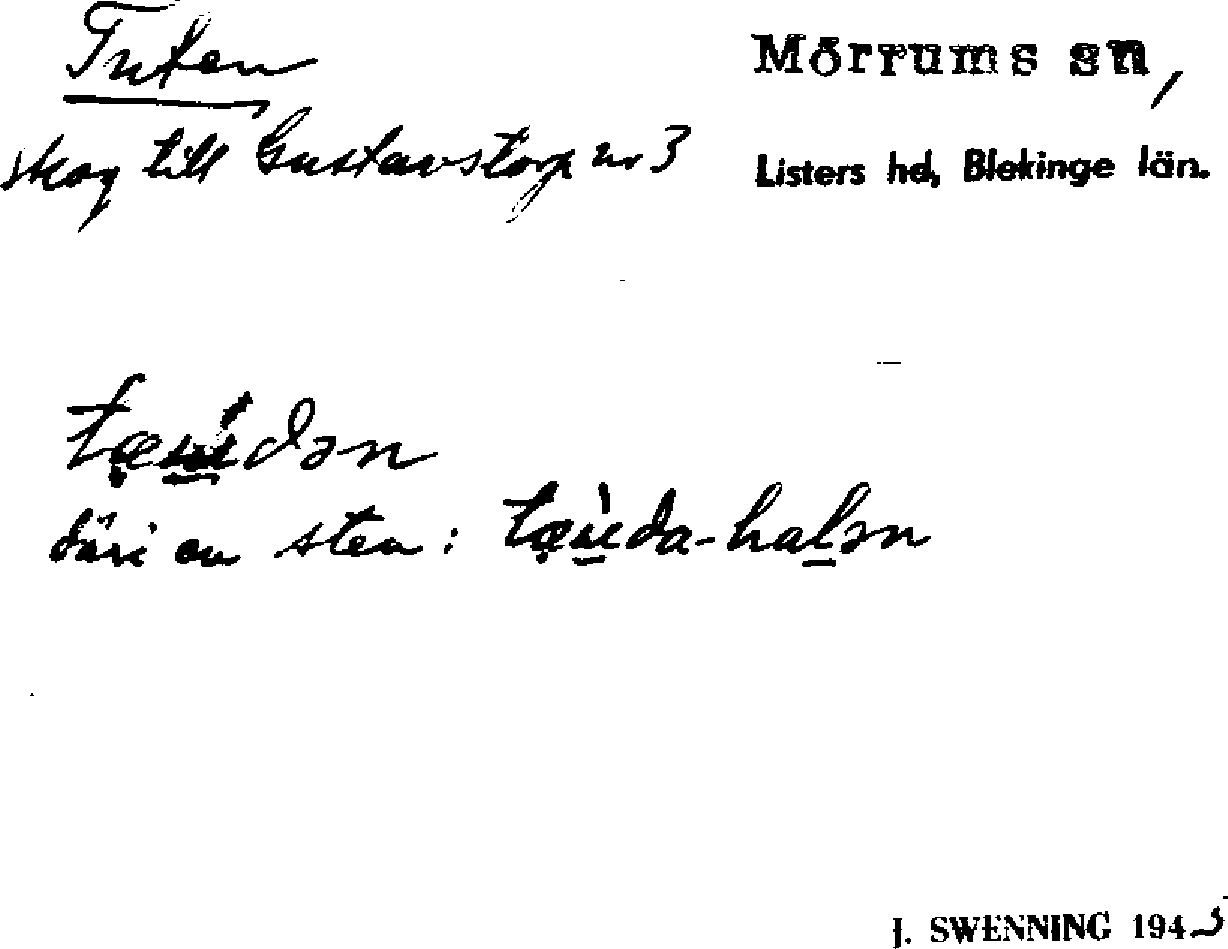 Tuten
Mörrums sn,
skog till Gustavstorp nr 3
Listers hd, Blekinge län.
däri en sten:
J. SWENNING 1945